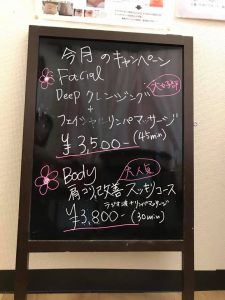 今月のキャンペーン
Facial
大好評
Deep クレンジング
+
フェイシャルリンパマッサージ
¥3,500- (45min)
Body
大人気
肩コリ改善 スッキリコース
ラジオ波+リンパマッサージ
¥3,800- (30min)